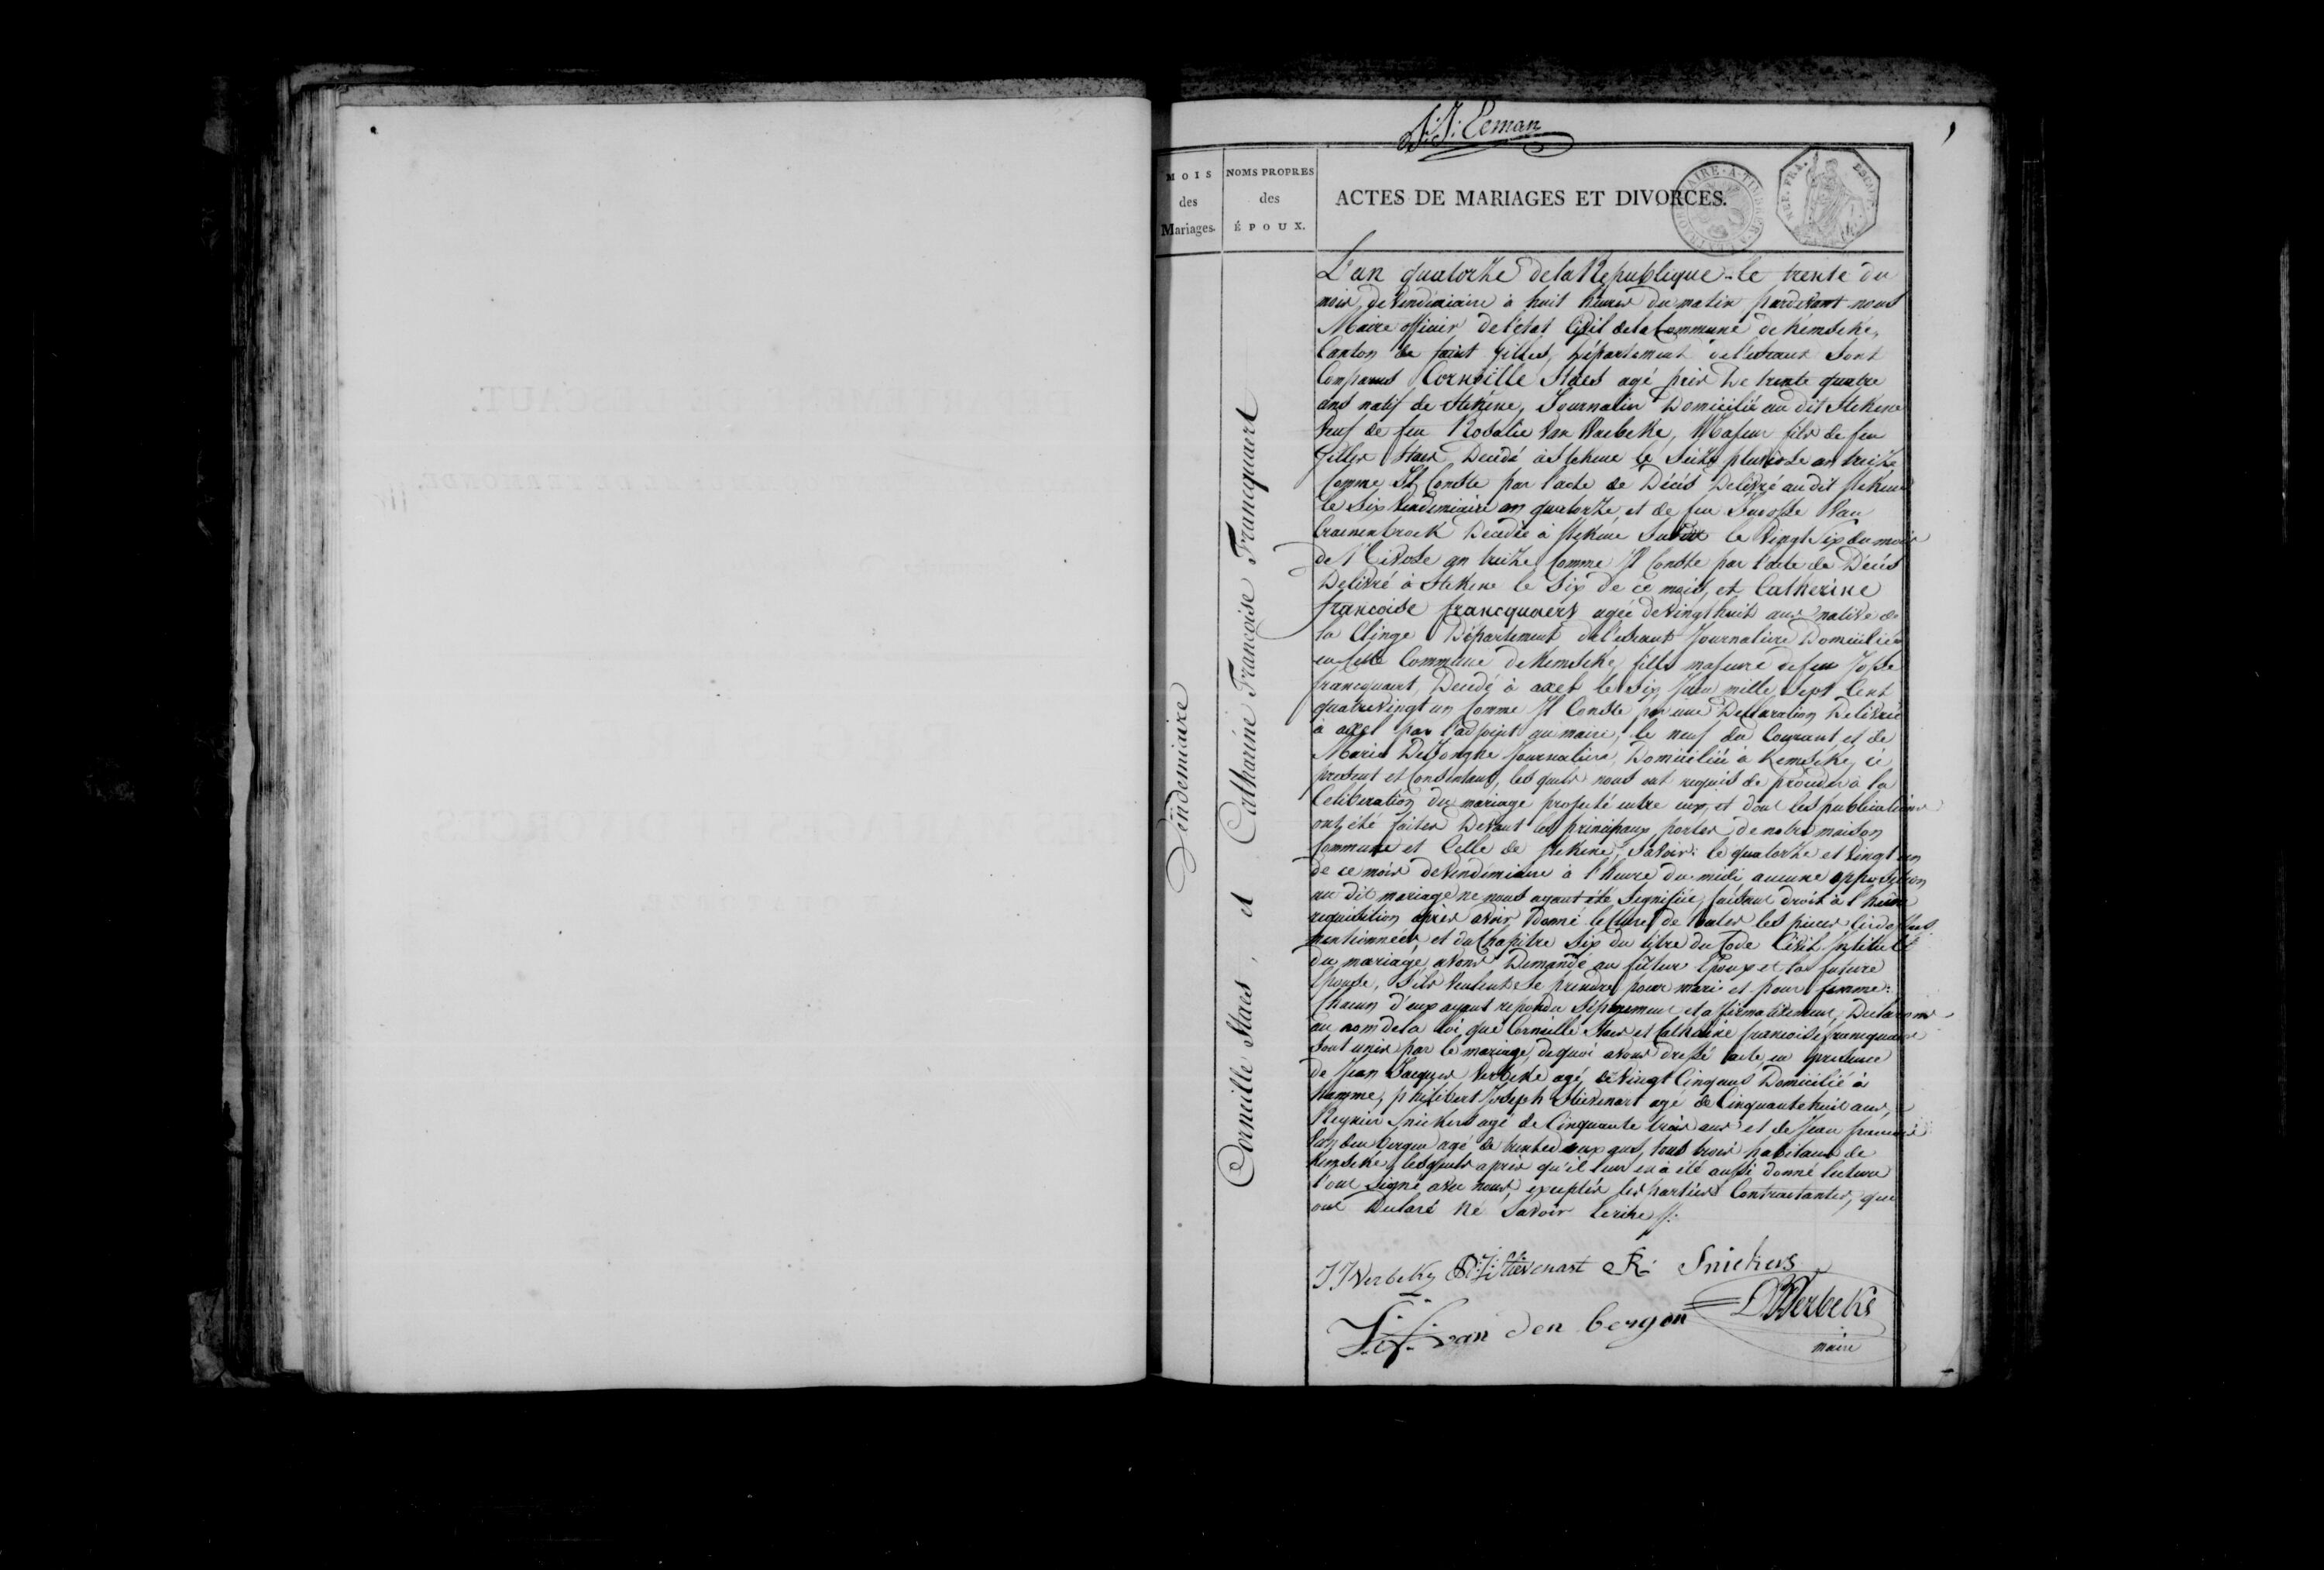 J: J: Leman
MOIS
des
Mariages.
NOMS PROPRES
des
ÉPOUX.
ACTES DE MARIAGES ET DIVORCES.
Vindemiaire
Corneille Staes, et Catharine Françoise Francquaert
L'an quatorze de la Republique le trente du
mois de vendimiaire à huit heures du matin pardevant nous
Maire officier de l'état Civil de la Commune de Kemseke,
Canton de saint Gilles, Département de l'escaut sont
Comparus Corneille Staes agé de trente quatre
ans natif de Stekene, Journalier Domicilié au dit Stekene
veuf de feu Rosalie van Waebeke, Majeur fils de feu
Gilles Staes Decedé à Stekene le Seize pluviose an treize
Comme Il Conste par l'acte de Décès Delivré au dit Stekene
le six vendemiaire an quatorze et de feu Van
Craenenbroek Decedée à Stekene le vingt six du mois
de Nivose an treize Comme Il Conste par l'acte de Décès
Delivré à Stekene le six de ce mois, et Catherine
françoise francquaert agée de vingt huit ans native de
la Clinge Département de l'escaut Journaliere Domiciliée
en cette Commune de Kemseke, fille majeure de feu Josse
francquaert, Decedé à axel le six Juin mille sept Cent
quatrevingt un Comme Il Conste par une Declaration Delivrée
à axel par l'adjoint au maire, le neuf du Courant et de
Marie De Jonghe Journaliere, Domiciliée à Kemseke, ci
present et Consentant, lesquels nous ont requis de proceder à la
Celiberation du mariage projeté entre eux, et dont les publications
ont été faites Devant les principaux portes de notre maison
Commune et Celle de Stekene, Savoir: le quatorze et vingt un
de ce mois de vendimiaire à l'heure du midi aucune opposition
au dit mariage ne nous ayant été signifiée, faisant droit à
requisition après avoir Donné lecture de toutes les pieces
mentionnées, et du Chapitre six du titre du Code Civil Intitulé
du mariage, avons Demandé au futur Epoux et la future
Epouse, s'ils veulent se prendre pour mari et pour femme:
Chacun d'eux ayant repondu séparement et affirmativement, Declarons
au nom de la loi, que Corneille Staes et Catharine françoise francquaert
sont unis par le mariage, de quoi avons dressé acte en presence
de Jean Jacques Verbeke agé de vingt Cinq ans Domicilié à
hamme, philibert Joseph Stievenart agé de Cinquante huit ans,
Regnier Snickers agé de Cinquante trois ans et de Jean francois
van den bergen agé de trente deux ans, tous trois habitans de
Kemseke, lesquels après qu'il leur en à été aussi donné lecture
l'ont signé avec nous, exceptés les parties Contractantes, que
ont Declaré ne savoir Ecrire //.
J J Verbeke P: J: Stievenart R: Snickers
J: f: van den bergen Verbeke
maire